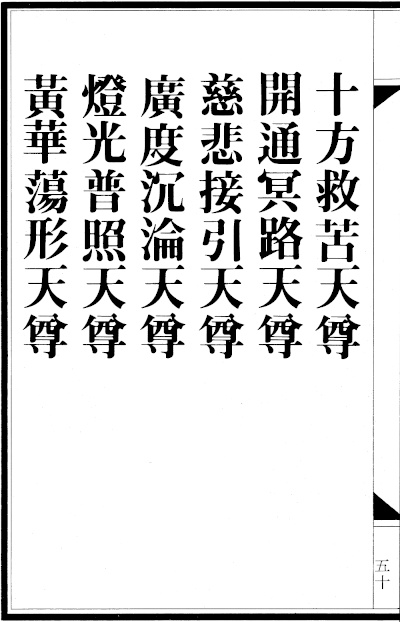 十方救苦天尊
開通冥路天尊
慈悲接引天尊
廣度沉淪天尊
燈光普照天尊
黃華蕩形天尊
五十